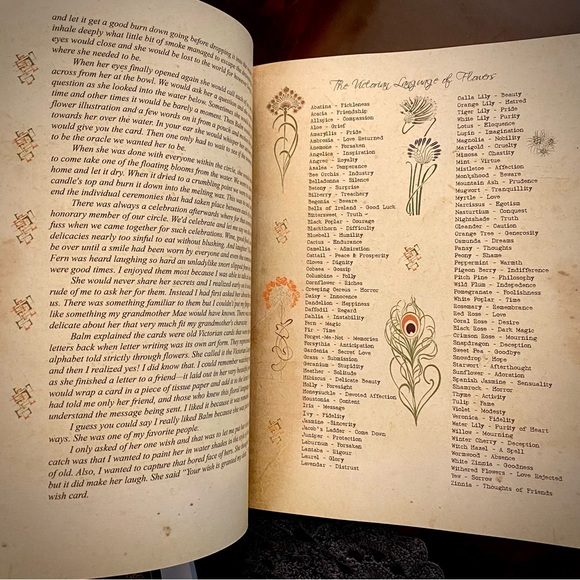 and let it get a good burn down going before dropping it into
inhale deeply what little bit of smoke managed to escape the
eyes would close and she would be lost to the world for
where she needed to be.
When her eyes finally opened again she would call
across from her at the bowl. We would ask her a question
question as she looked into the water below. Sometimes
time and other times it would be barely a moment. Then
flower illustration and a few words on it from a pouch and
towards her over the water. In your ear she would whisper
would give you the card. Then one only had to wait
to be the oracle we wanted her to be.
When she was done with everyone within the circle,
to come take one of the floating blooms from the water,
home and let it dry. When it dried to a crumbling point we
candle's top and burn it down into the melting wax.
end the individual ceremonies that had taken place between
There was always a celebration afterwards where
honorary member of our circle. We'd celebrate and
fuss when we came together for such ceremonies. What
delicacies nearly too sinful to eat without blushing. And
be over until a smile had been worn by everyone and even
Fern was heard laughing so hard an unladylike snort slipped
were good times. I enjoyed them most because I was able
She would never share her secrets and I realized early on
rude of me to ask her for them. Instead I had first asked her
us. There was something familiar to them but I couldn't
like something my grandmother Mae would have known. There
delicate about her that very much fit my grandmother's
Balm explained the cards were old Victorian cards that
letters back when letter writing was its own art form. They
alphabet told strictly through flowers. She called it the Victorian
and then I realized yes! I did know that. I could remember
as she finished a letter to a friend—it laid out in her very
would wrap a card in a piece of tissue paper and add it to the
had told me only her friend, and those who knew this floral
understand the message being sent. I liked it because it
I guess you could say I really liked Balm because she
ways. She was one of my favorite people.
I only asked of her one wish and that was to let me paint
catch was that I wanted to paint her in water shades in the
of old. Also, I wanted to capture that bored face of hers.
but it did make her laugh. She said "Your wish is granted
wish card.
The Victorian Language of Flowers
Abatina - Fickleness
Acacia - Friendship
Allspice - Compassion
Aloe - Grief
Amaryllis - Pride
Ambrosia - Love Returned
Anemone - Forsaken
Angelica - Inspiration
Angrec - Royalty
Azalea - Temperance
Bee Orchis - Industry
Belladonna - Silence
Betony - Surprise
Bilberry - Treachery
Begonia - Beware
Bells of Ireland - Good Luck
Bittersweet - Truth
Black Poplar - Courage
Blackthorn - Difficulty
Bluebell - Humility
Cactus - Endurance
Camellia - Admiration
Cattail - Peace & Prosperity
Cloves - Dignity
Cobaea - Gossip
Columbine - Folly
Cornflower - Riches
Creeping Cereus - Horror
Daisy - Innocence
Dandelion - Happiness
Daffodil - Regard
Dahlia - Instability
Fern - Magic
Fir - Time
Forget-Me-Not - Memories
Forsythia - Anticipation
Gardenia - Secret Love
Grass - Submission
Geranium - Stupidity
Heather - Solitude
Hibiscus - Delicate Beauty
Holly - Foresight
Honeysuckle - Devoted Affection
Houstonia - Content
Iris - Message
Ivy - Fidelity
Jasmine - Sincerity
Jacob's Ladder - Come Down
Juniper - Protection
Laburnum - Forsaken
Lantana - Rigour
Laurel - Glory
Lavender - Distrust
Calla Lily - Beauty
Orange Lily - Hatred
Tiger Lily - Pride
White Lily - Purity
Lotus - Eloquence
Lupin - Imagination
Magnolia - Nobility
Marigold - Cruelty
Mimosa - Chastity
Mint - Virtue
Mistletoe - Affection
Monkshood - Beware
Mountain Ash - Prudence
Mugwort - Tranquility
Myrtle - Love
Narcissus - Egotism
Nasturtium - Conquest
Nightshade - Truth
Oleander - Caution
Orange Tree - Generosity
Osmunda - Dreams
Pansy - Thoughts
Peony - Shame
Peppermint - Warmth
Pigeon Berry - Indifference
Pitch Pine - Philosophy
Wild Plum - Independence
Pomegranate - Foolishness
White Poplar - Time
Rosemary - Remembrance
Red Rose - Love
Coral Rose - Desire
Black Rose - Dark Magic
Crimson Rose - Mourning
Snapdragon - Deception
Sweet Pea - Goodbye
Snowdrop - Hope
Starwort - Afterthought
Sunflower - Adoration
Spanish Jasmine - Sensuality
Shamrock - Fortune
Thyme - Activity
Tulip - Fame
Violet - Modesty
Veronica - Fidelity
Water Lily - Purity of Heart
Willow - Mourning
Winter Cherry - Deception
Witch Hazel - A Spell
Wormwood - Absence
White Zinnia - Goodness
Withered Flowers - Love Rejected
Yew - Sorrow
Zinnia - Thoughts of Friends